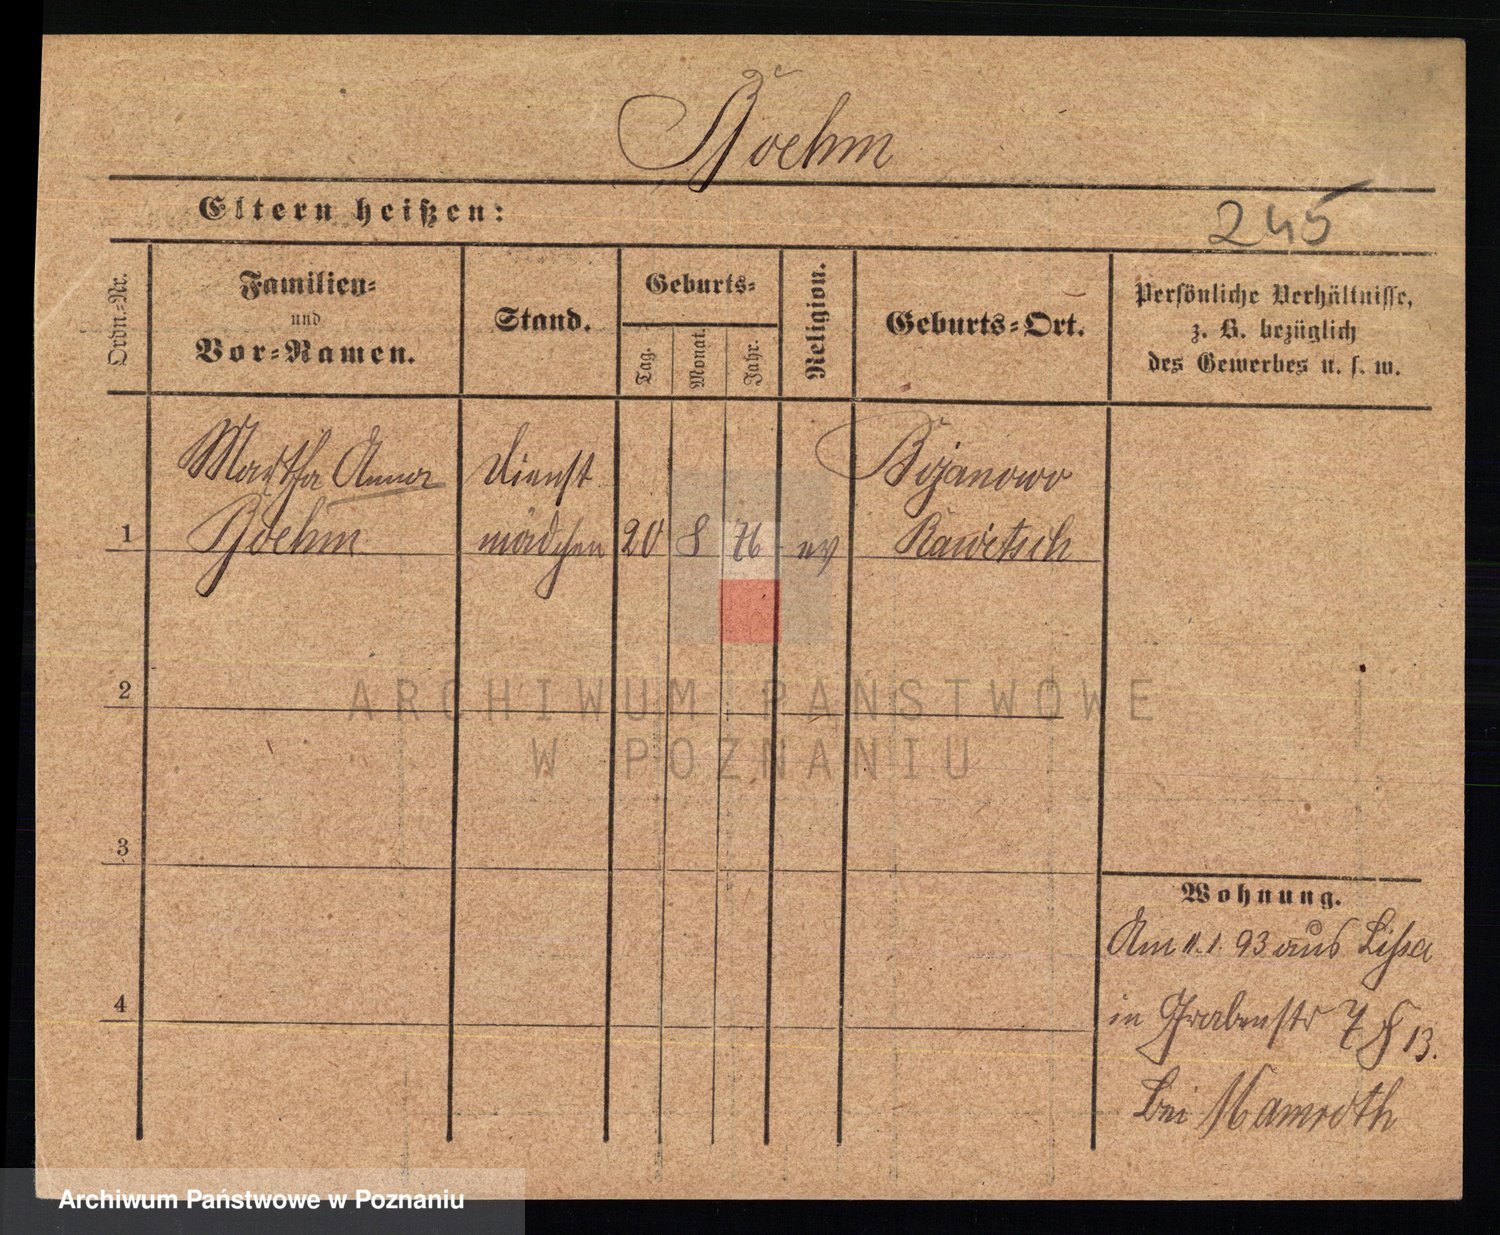 Boehm
Eltern heißen:
245
Ordn.-Nr.
Familien-
und
Vor-Namen.
Stand.
Geburts-
Tag.
Monat.
Jahr.
Religion.
Geburts-Ort.
Persönliche Verhältnisse,
z. B. bezüglich
des Gewerbes u. s. w.
Martha Anna
Boehm
Dienst
mädchen
20
8
76
ev
Bojanowo
Rawitsch
1
2
3
4
Wohnung.
Am 11.1.93 aus Lissa
in Grabenstr 7 13.
bei Mamroth
ARCHIWUM PAŃSTWOWE
W POZNANIU
Archiwum Państwowe w Poznaniu